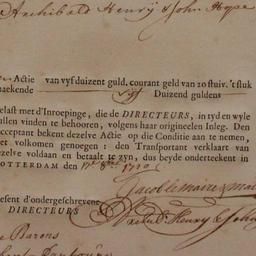 Archibald Henry & John Hope
Actie van vyf duizent guld. courant geld van 20 stuiv. 't stuk
aekende vyf Duizend guldens
elast met d'Inroepinge, die de DIRECTEURS, in tyd en wyle
ullen vinden te behooren, volgens haar origineelen Inleg. Den
cceptant bekent dezelve Actie op die Conditie aan te nemen,
et volkomen genoegen: den Transportant verklaart van
ezelve voldaan en betaalt te zyn, dus beyde onderteekent in
OTTERDAM den 17e 8ber 1720
Jacob le maire &
esent d'ondergeschrevene
DIRECTEURS
Henry & John
e Barons